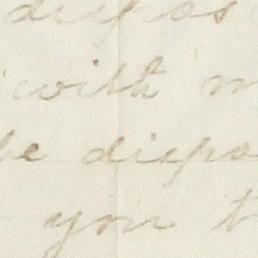 dispos
with m
be dispo
you t